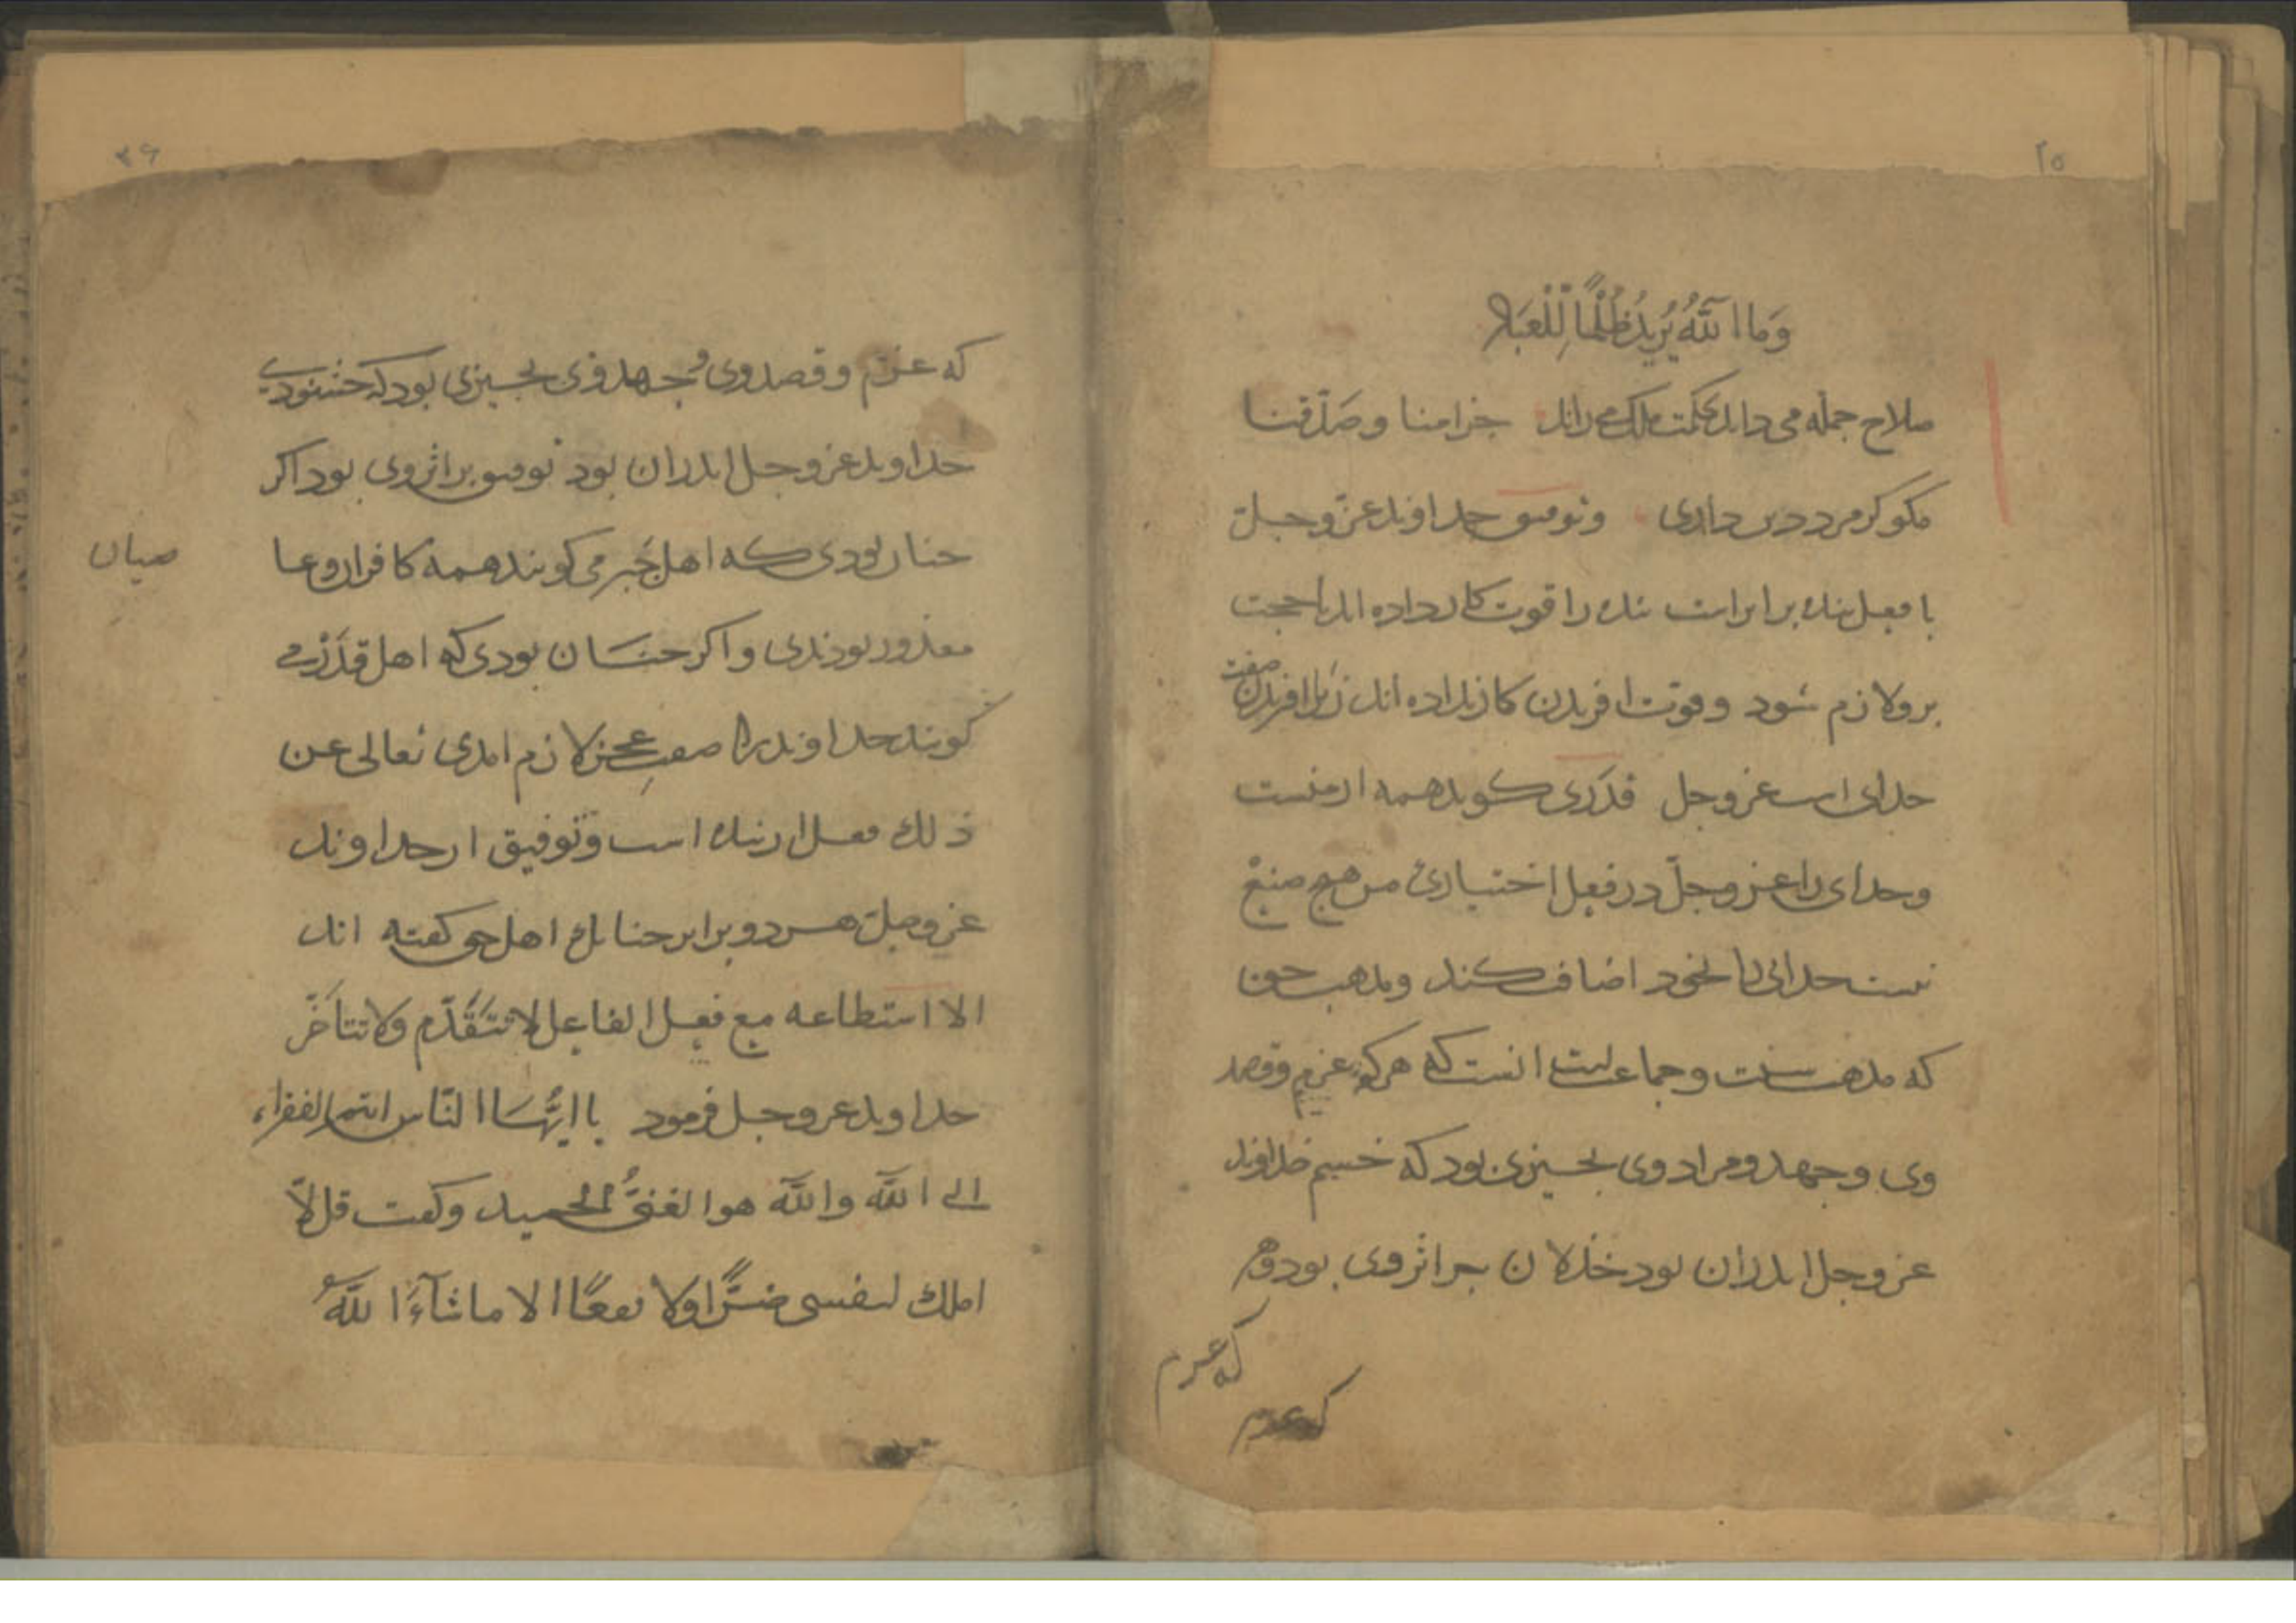 ۲۵
وَما اللَّهُ يُرِيدُ ظُلْمًا لِلْعِبَاد
صلاح جمله می داند بحکمت ملک می راند جز امنا وصَدّقنا
مکو کر مرد دین داری وتوفیق خداوند عزّ وجلّ
با فعل بنده برابر است بنده را قوت کار داده اند تا حجت
برو لازم شود وقوت افریدن کار نداده اند زیرا افریدن صفت
خدای است عز وجل قدَری کوید همه از منست
وخدای را عز وجلّ در فعل اختیاریٔ من هیچ صنعْ
نیست خدائی را بخود اضافت کند ومذهب حق
که مذهب سنت وجماعت است انست که هرکه عزم وقصد
وی وجهد ومراد وی بچیزی بود که خشم خداوند
عز وجل اندران بود خذلان براثر وی بود وهر
که عزم
که عزم
۲۶
که عزم وقصد وی وجهد وی بچیزی بود که خشنودی
خداوند عز وجل اندران بود توفیق براثر وی بود اکر
چنان بودی که اهل جَبر می کویند همه کافران وعا
صیان
معذور بودندی واکر چنان بودی که اهل قدَر می
کویند خداوند را صفتِ عجز لازم امدی تعالی عن
ذلك فعل از بنده است وتوفیق از خداوند
عز وجلّ هر دو برابر چنانک اهل حق کفته اند
الا استطاعه مع فعل الفاعل لا تتَقَدّم ولا تتأخّر
خداوند عز وجل فرمود یا ایُّهَا النّاس انتم الفقراء
الے اللّه واللّه هو الغنیُّ الحمید وکفت قل لّا
املك لنفسی ضَرًّا ولا نفعًا الا ما شآءَ اللّهُ